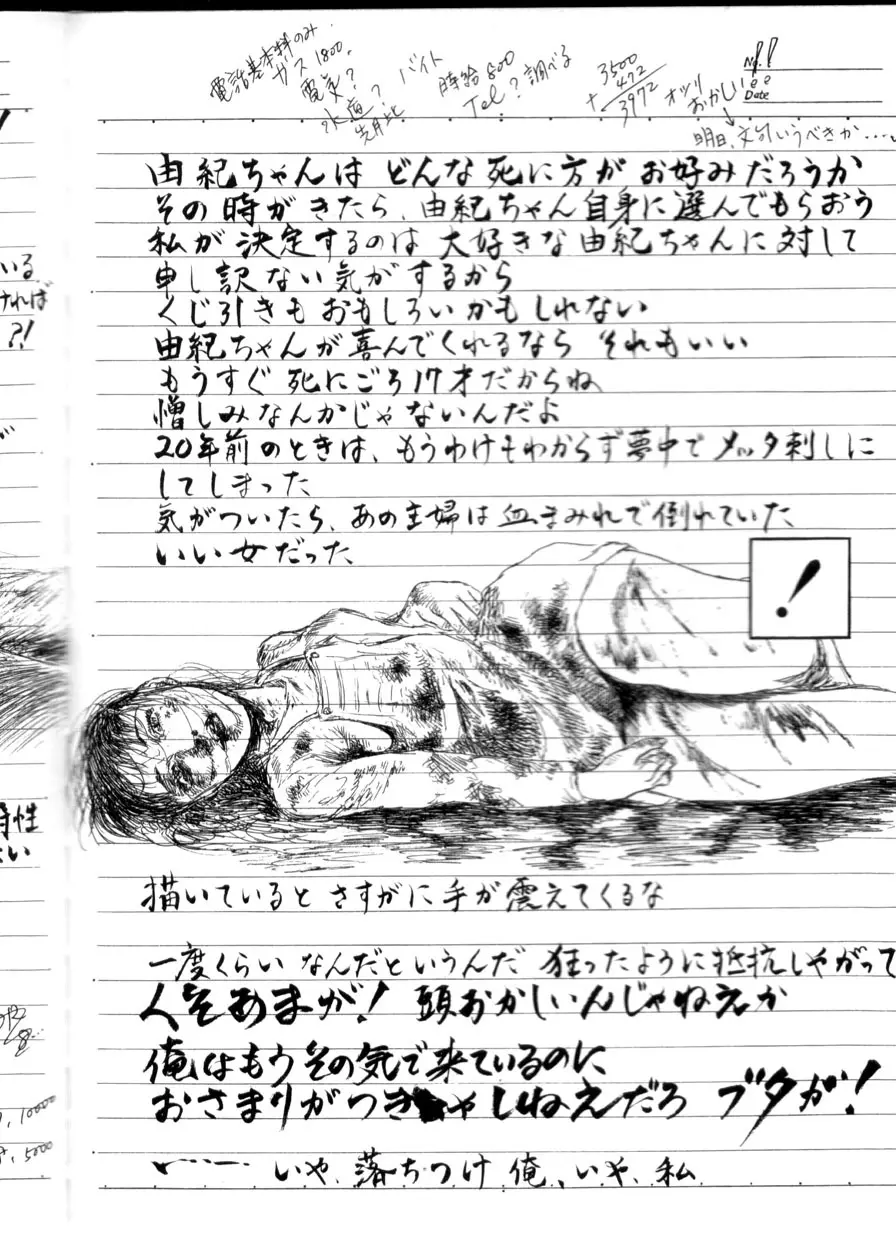 電話基本料のみ
ガス 1800.
電気?
水道?
先月比
バイト
時給 800
Tel? 調べる
3500
472
+
3972
オツリ
おかしい!!
No.
Date
明日、文句いうべきか……
由紀ちゃんは どんな死に方が お好みだろうか
その時がきたら、由紀ちゃん自身に選んでもらおう
私が 決定するのは 大好きな由紀ちゃんに対して
申し訳ない気がするから
くじ引きも おもしろいかもしれない
由紀ちゃんが喜んでくれるなら それもいい
もうすぐ 死にごろ17才だからね
憎しみなんかじゃないんだよ
20年前のときは、もうわけもわからず夢中でメッタ刺しに
してしまった
気がついたら、あの主婦は血まみれで倒れていた
いい女だった
!
描いていると さすがに 手が震えてくるな
一度くらい なんだというんだ 狂ったように抵抗しやがって
人をあまが! 頭おかしいんじゃねえか
俺はもうその気で来ているのに
おさまりがつきゃしねえだろ ブタが!
……いや、落ちつけ 俺、いや、私
いる
ければ
?!
特性
ない
10000
5000